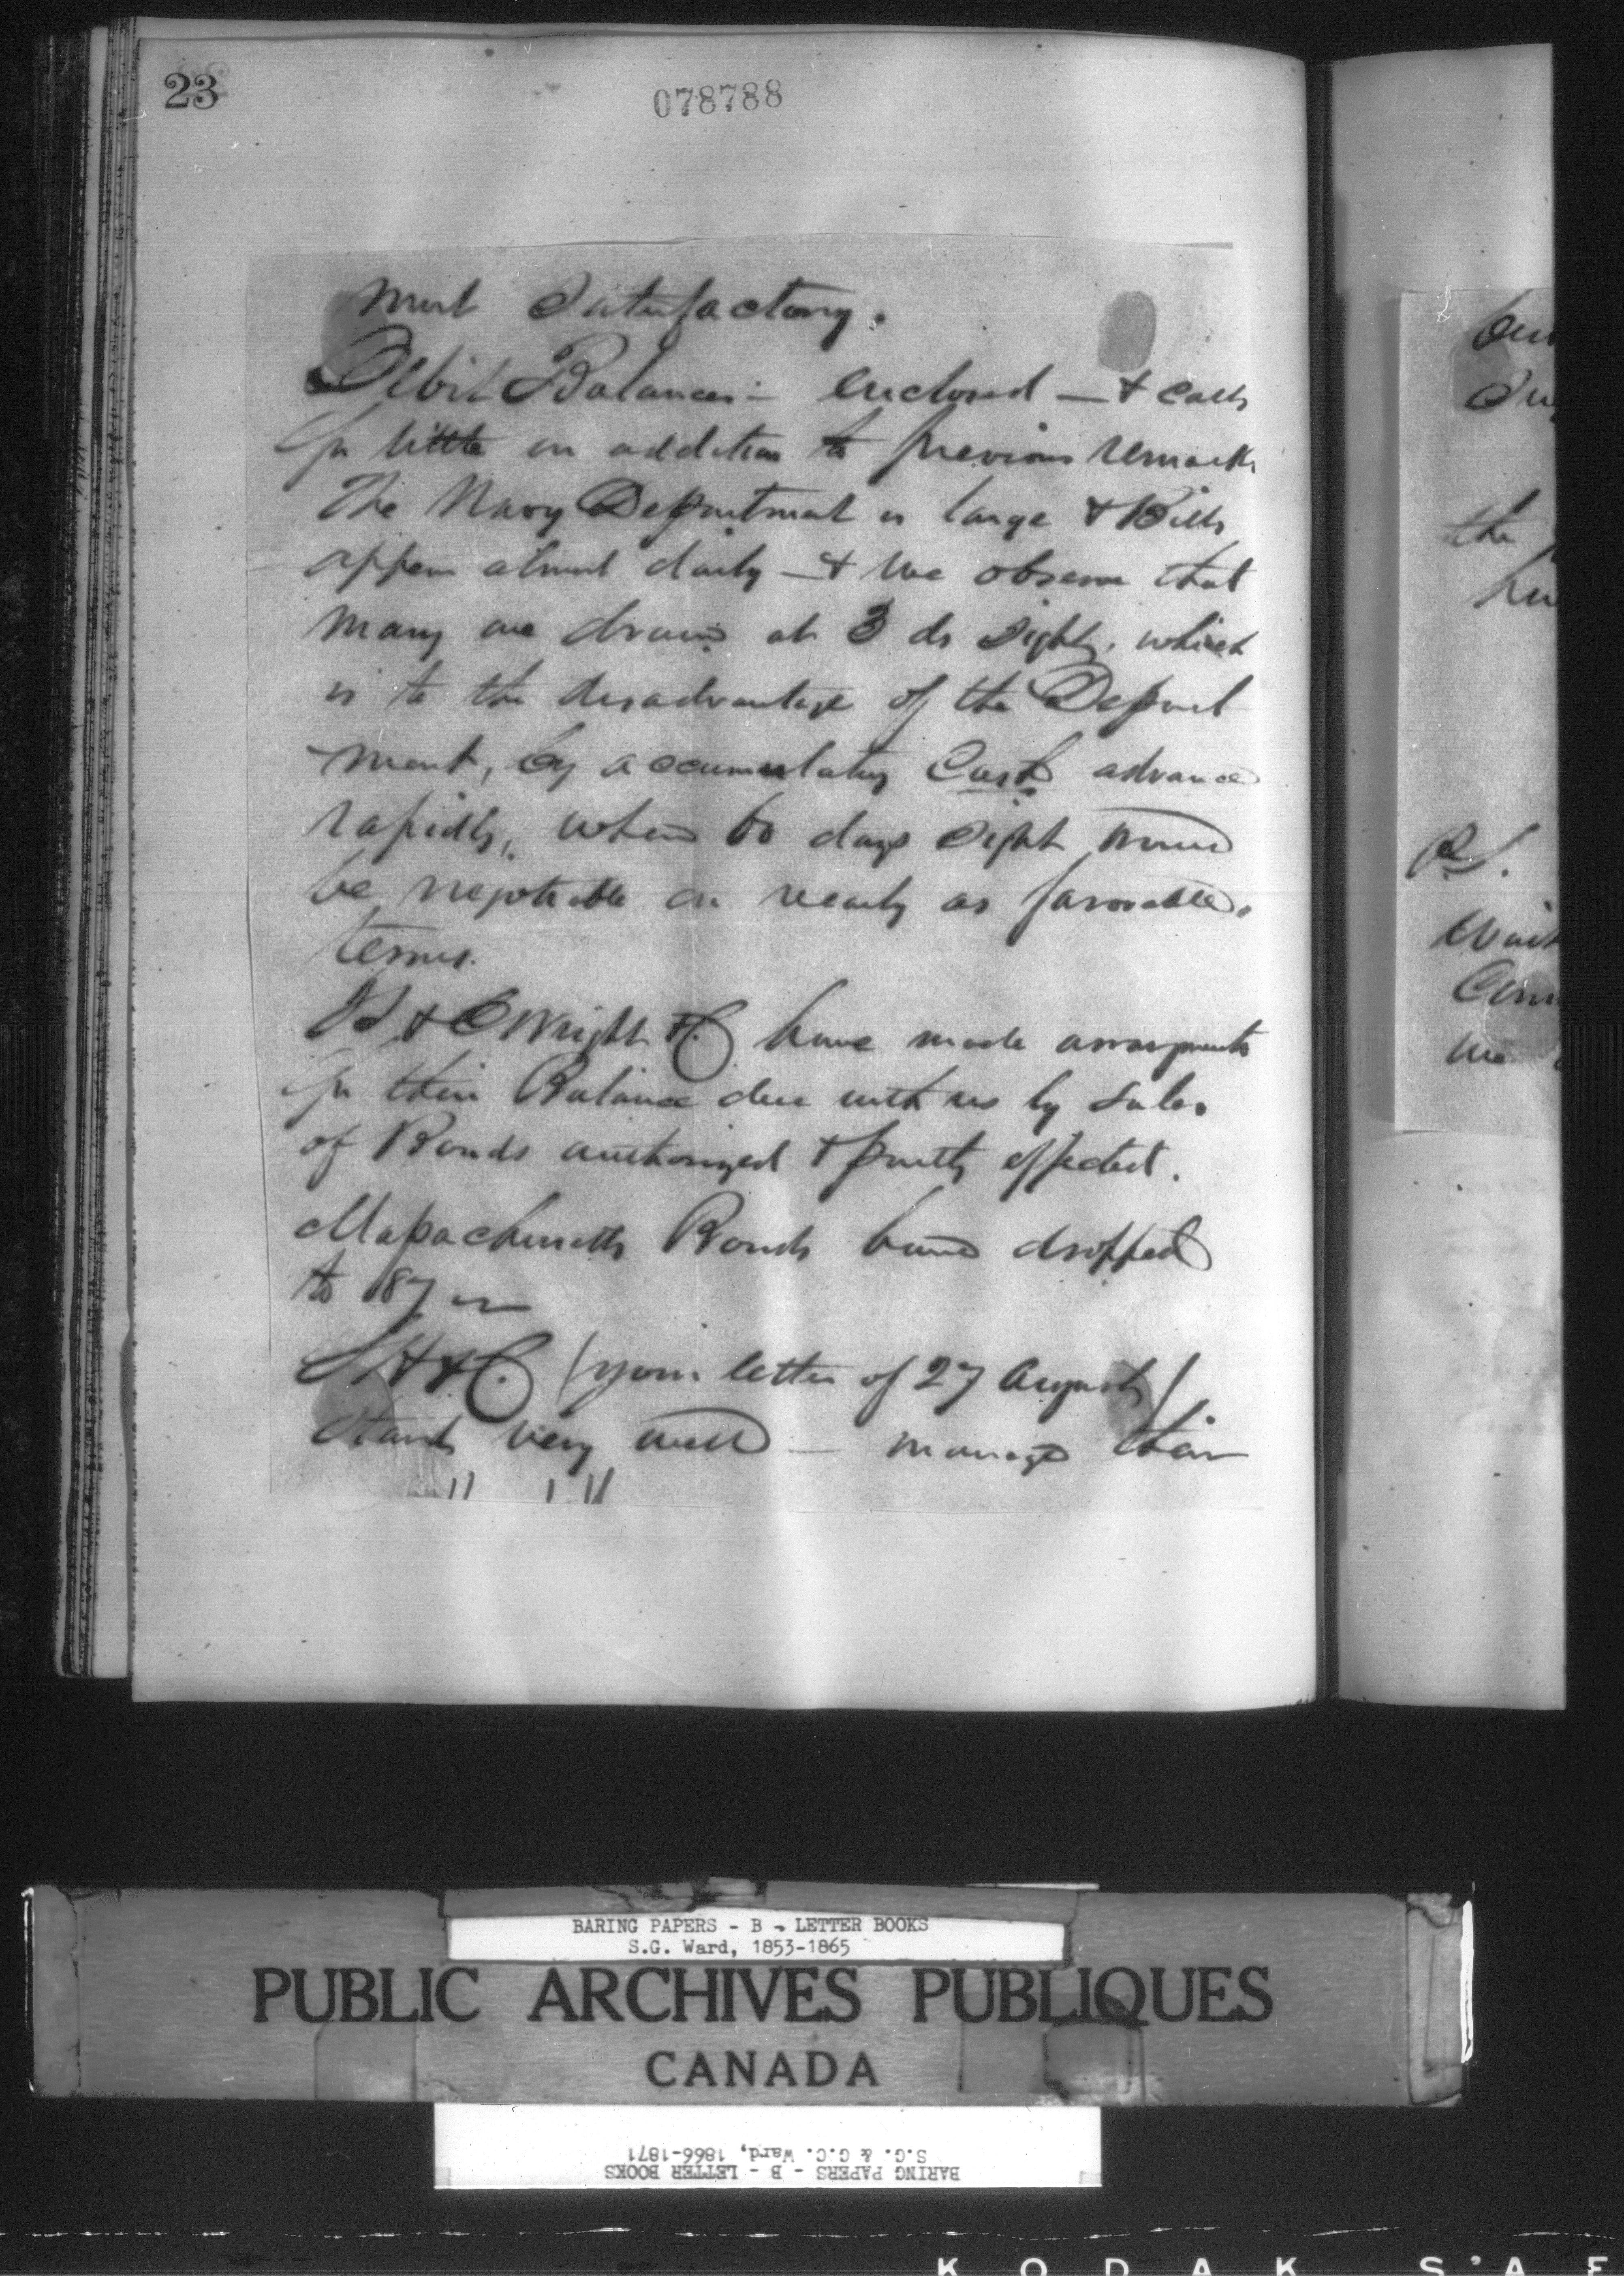 23
078788
most Satisfactory.
Debit Balances:- enclosed — & calls
for little in addition to previous remarks
The Navy Department is large & Bills
appear almost daily — & we observe that
many are drawn at 3 ds sight, which
is to the disadvantage of the Depart
ment, by accumulating Cash advance
rapidly, when 60 days sight would
be negotiable on nearly as favorable
terms.
& C Wright & C. have made arrangements
for their Balance due with us by sales
of Bonds authorized & partly effected.
Massachusetts Bonds have dropped
to 87
(your letter of 27 August)
Stands very well — manage their
the
P.S.
we
BARING PAPERS - B - LETTER BOOKS
S.G. Ward, 1853-1865
PUBLIC ARCHIVES PUBLIQUES
CANADA
BARING PAPERS - B - LETTER BOOKS
S.G. & G.C. Ward, 1866-1871
KODAK S'AF